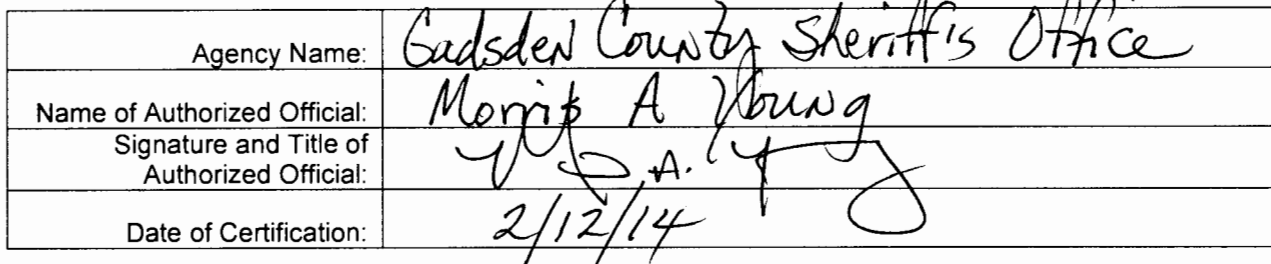 Agency Name: Gadsden County Sheriff's Office
Name of Authorized Official: Morris A Young
Signature and Title of
Authorized Official:
Date of Certification: 2/12/14